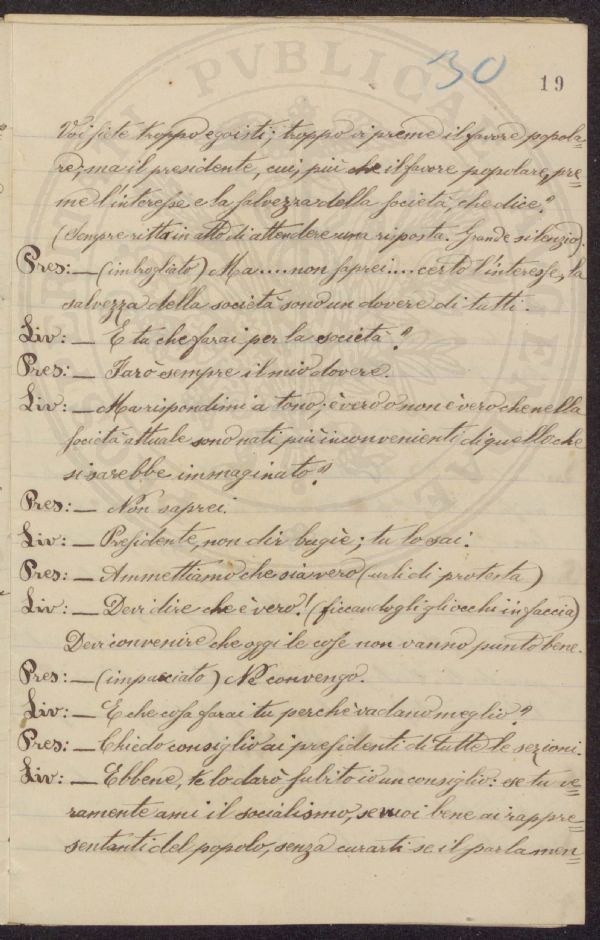 30
19
Voi siete troppo egoisti; troppo vi preme il favore popola=
re; ma il presidente, cui, più che il favore popolare, pre=
me l'interesse e la salvezza della società, che dice?
(Sempre ritta in atto di attendere una risposta. Grande silenzio).
Pres: — (imbrogliato) Ma.... non saprei.... certo l'interesse, la
salvezza della società sono un dovere di tutti.
Liv: — E tu che farai per la società?
Pres: — Farò sempre il mio dovere.
Liv: — Ma rispondimi a tono; è vero o non è vero che nella
società attuale sono nati più inconvenienti di quello che
si sarebbe immaginato?
Pres: — Non saprei.
Liv: — Presidente, non dir bugie; tu lo sai.
Pres: — Ammettiamo che sia vero (urli di protesta)
Liv: — Devi dire che è vero! (ficcandogli gli occhi in faccia)
Devi convenire che oggi le cose non vanno punto bene.
Pres: — (impacciato) Ne convengo.
Liv: — E che cosa farai tu perchè vadano meglio?
Pres: — Chiedo consiglio ai presidenti di tutte le sezioni.
Liv: — Ebbene, te lo darò subito io un consiglio: se tu ve=
ramente ami il socialismo, se vuoi bene ai rappre=
sentanti del popolo, senza curarti se il parlamen=